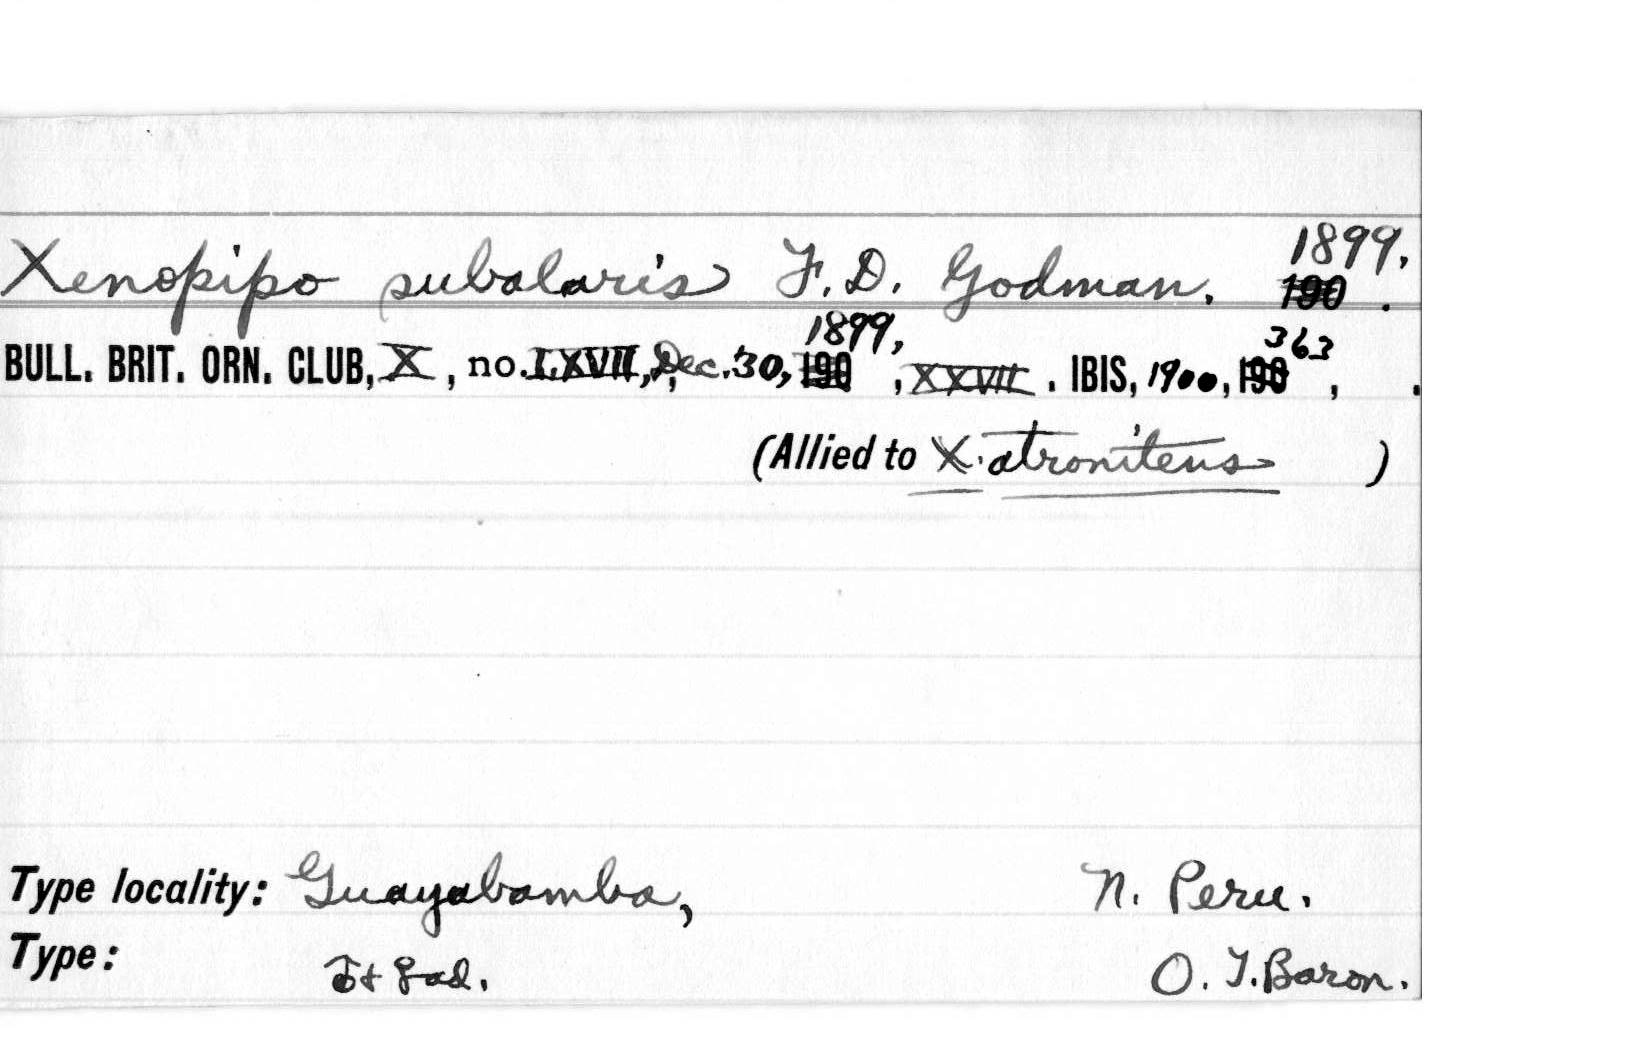 Xenopipo subalaris F. D. Godman. 1899.
190 .
BULL. BRIT. ORN. CLUB, X, no. LXVII, Dec. 30, 190 1899, , XXVII . IBIS, 1900, 190 363, .
(Allied to X. atronitens )
Type locality: Guayabamba, N. Peru.
Type: ♂ + ♀ ad. O. T. Baron.